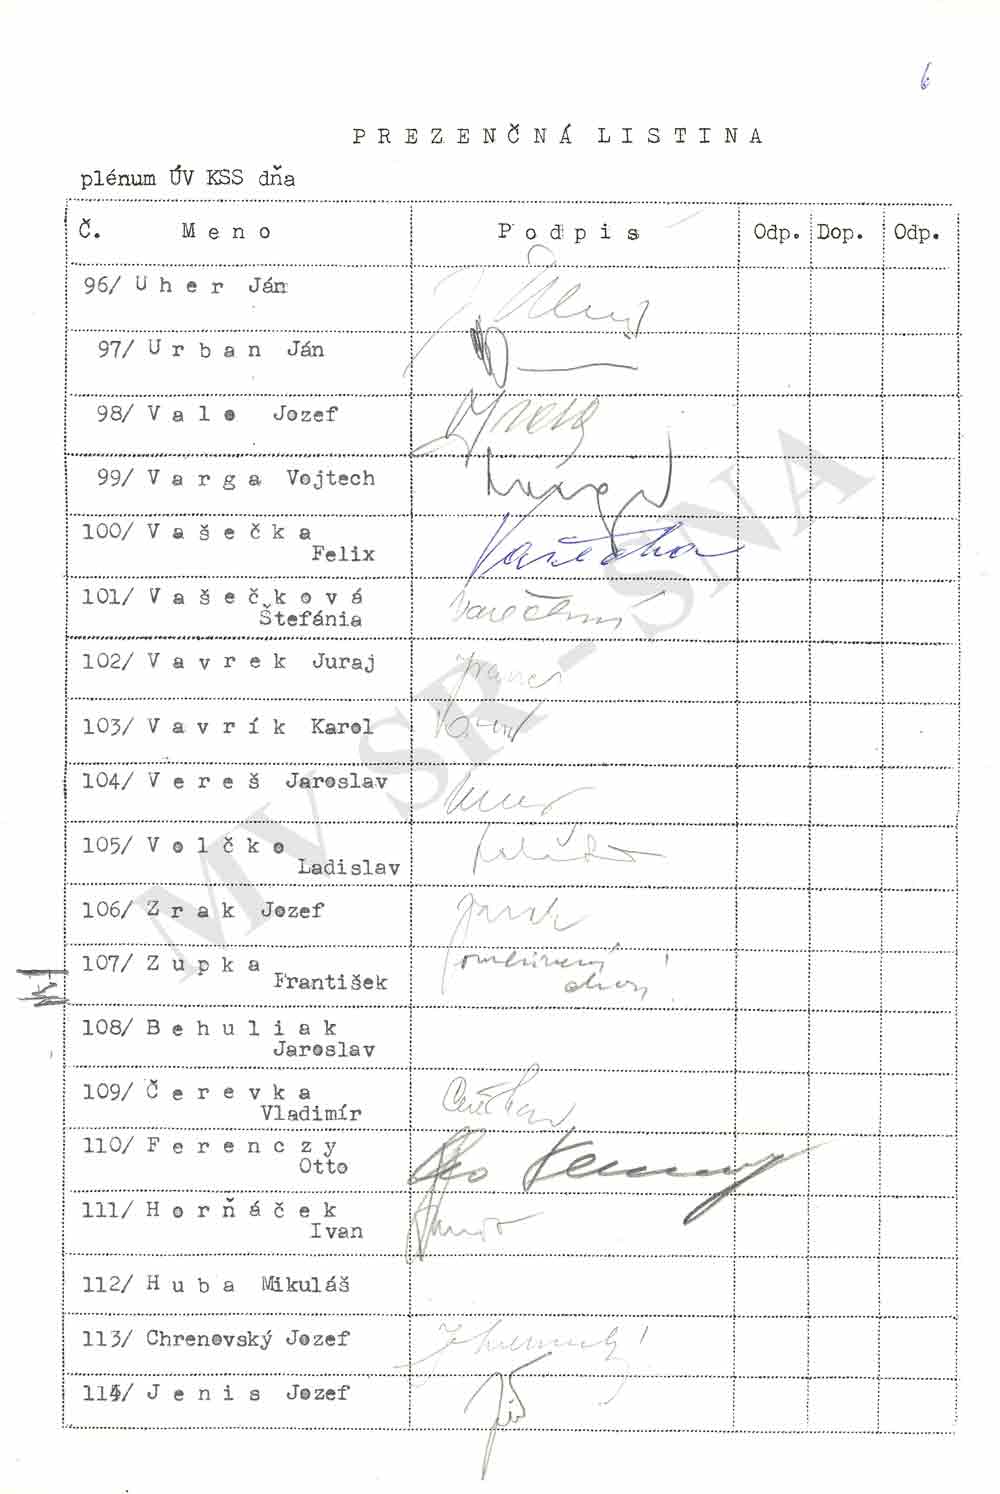 6
PREZENČNÁ LISTINA
plénum ÚV KSS dňa
Č. Meno Podpis Odp. Dop. Odp.
96/ Uher Ján
97/ Urban Ján
98/ Valo Jozef
99/ Varga Vojtech
100/ Vašečka
Felix Vašečka
101/ Vašečková
Štefánia
102/ Vavrek Juraj
103/ Vavrík Karol
104/ Vereš Jaroslav
105/ Volčko
Ladislav
106/ Zrak Jozef
107/ Zupka
František
108/ Behuliak
Jaroslav
109/ Čerevka
Vladimír
110/ Ferenczy
Otto
111/ Horňáček
Ivan
112/ Huba Mikuláš
113/ Chrenovský Jozef
114/ Jenis Jozef
MV SR - SNA